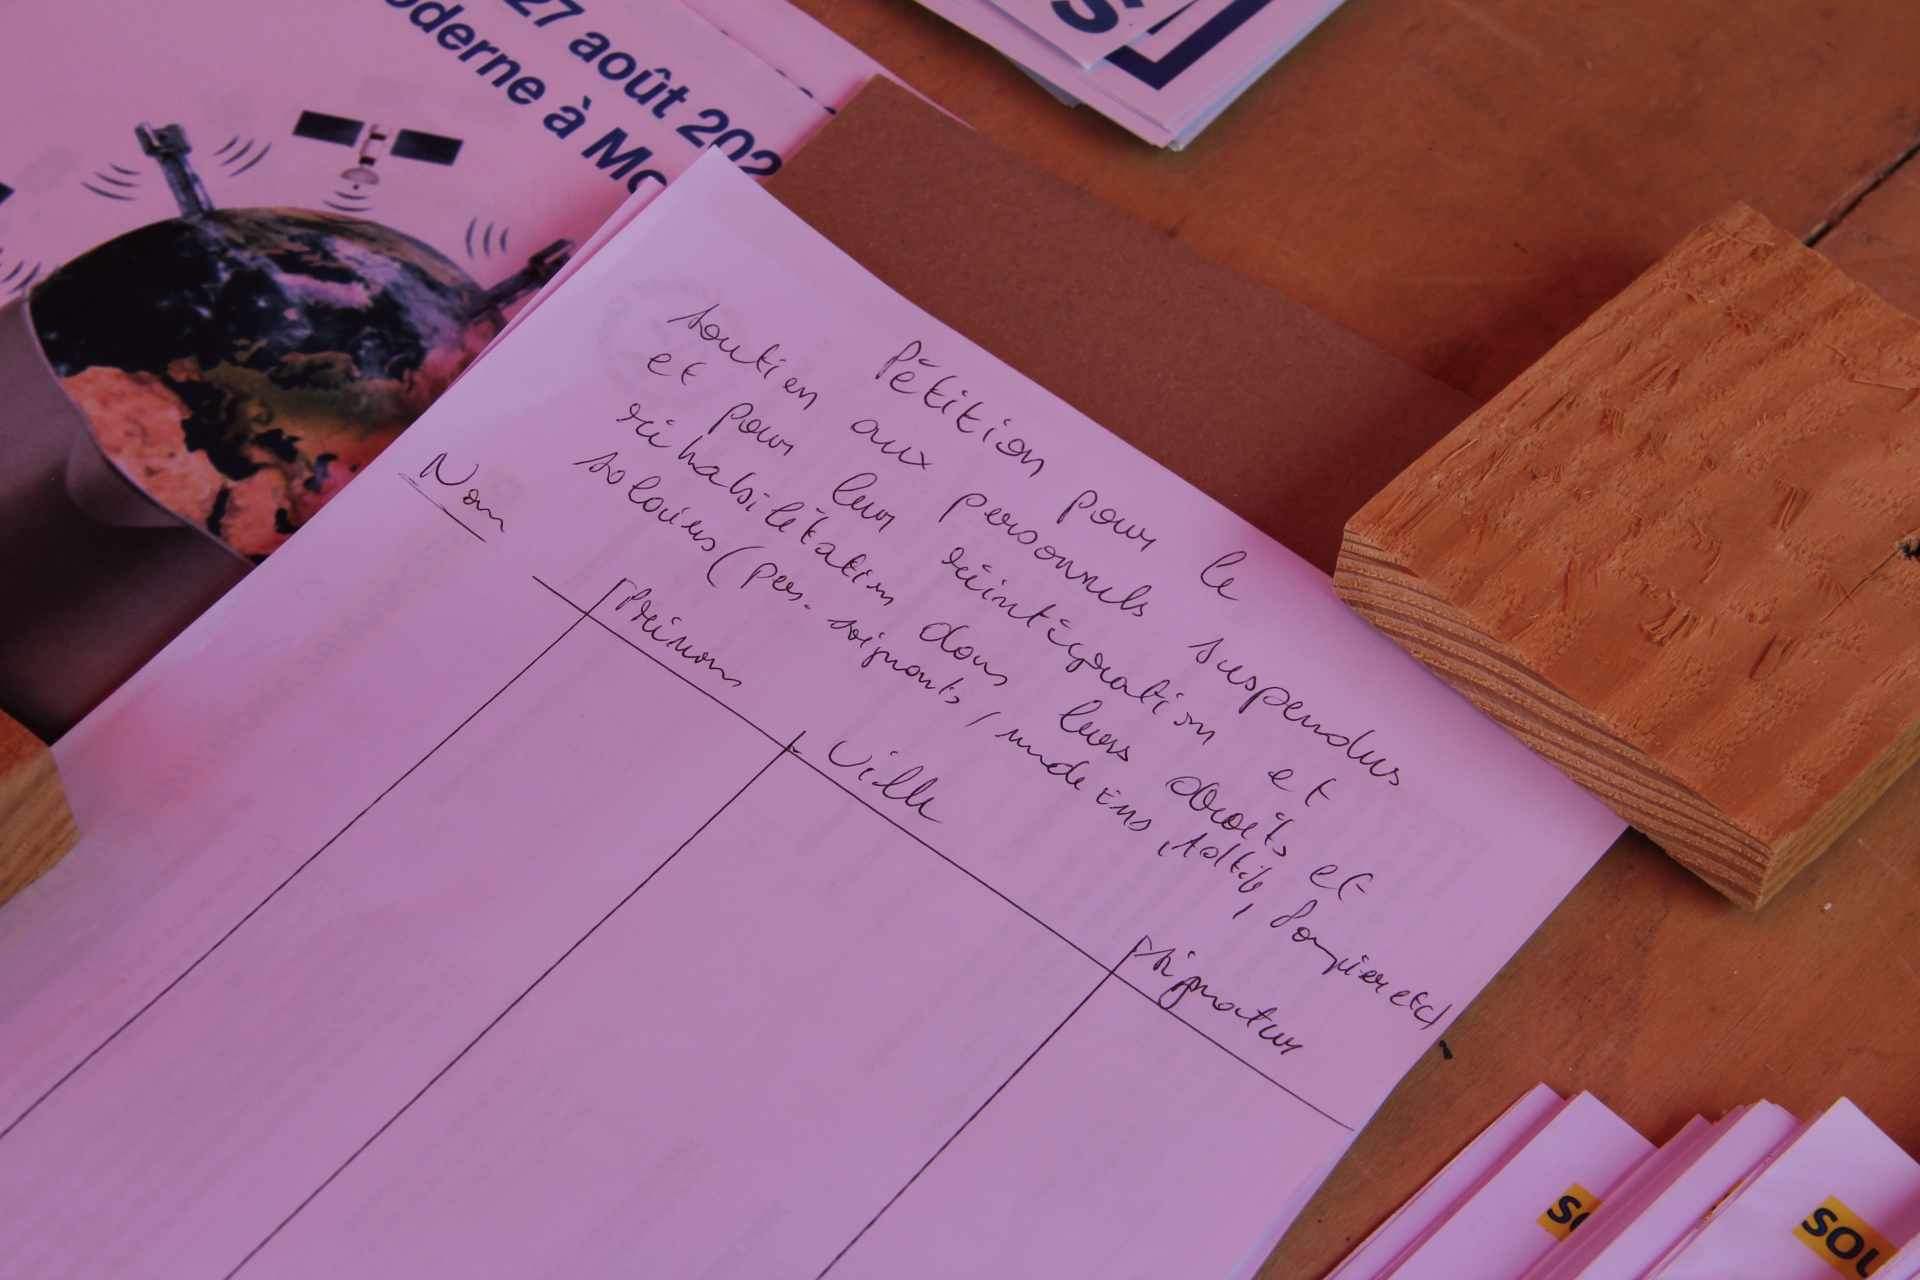 27 août 202
oderne à Mo
S]
Pétition pour le
soutien aux personnels suspendus
et pour leur réintégration et
réhabilitation dans leurs droits et
salaires (pers. soignants, médecins, , Pompier etc)
Nom
Prénom
Ville
Signature
SO
SOL